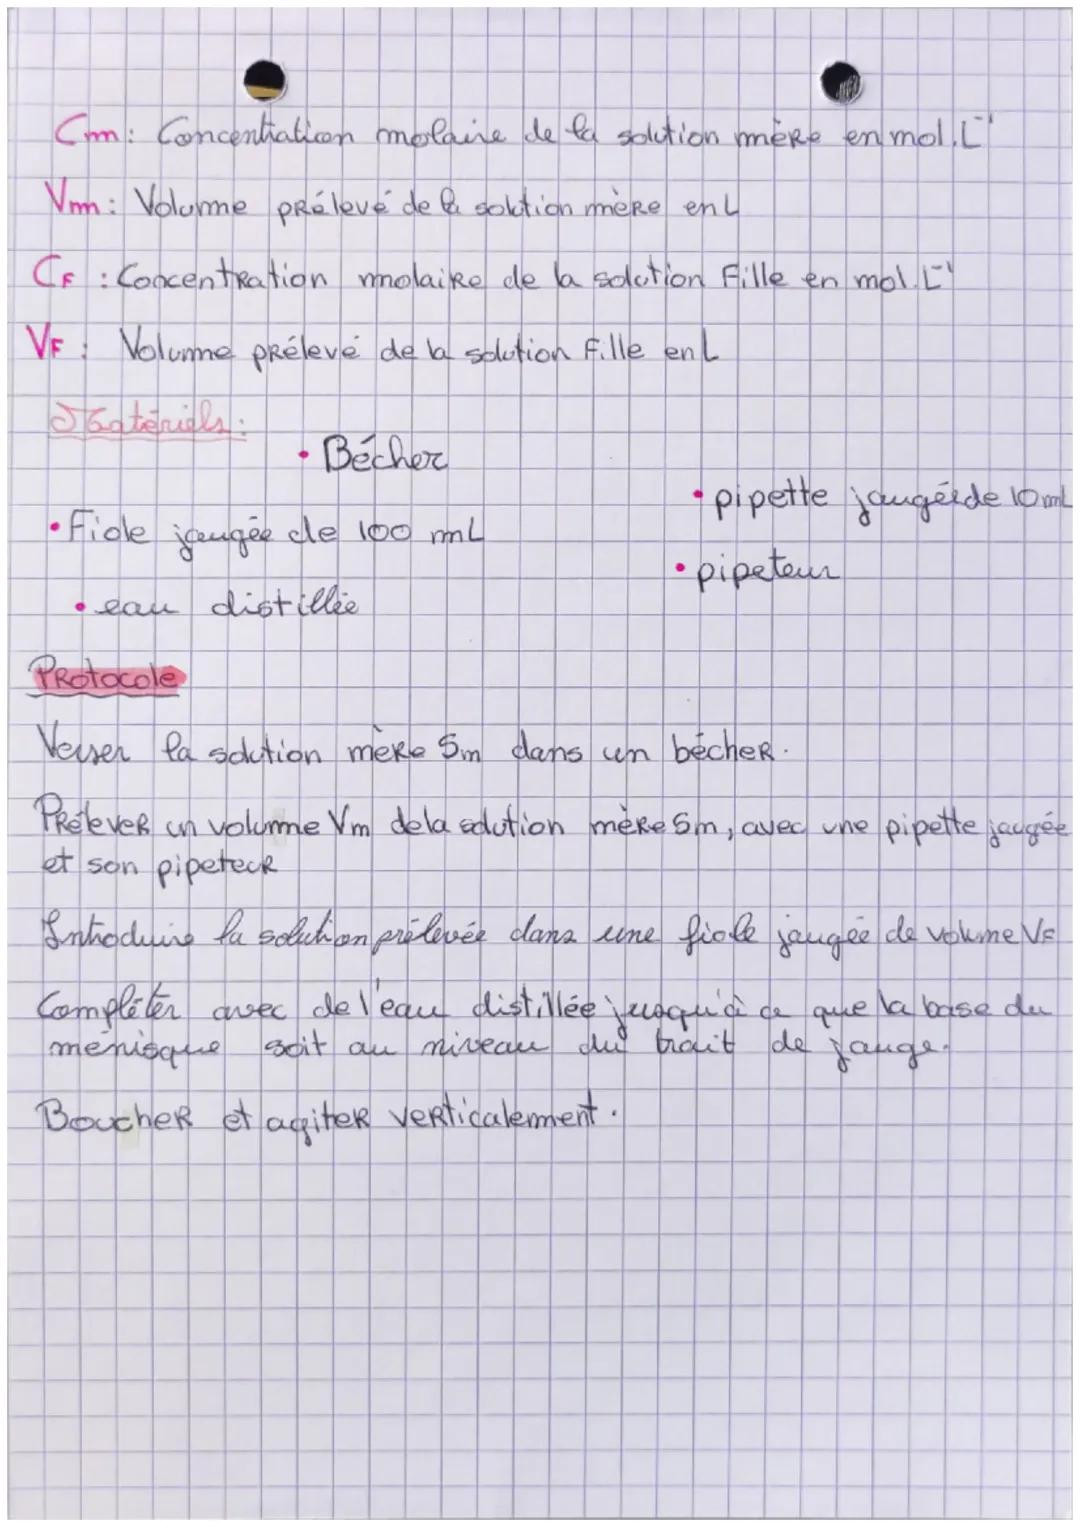 Cm : Concentration molaire de la solution mère en mol.L⁻¹
Vm : Volume prélevé de la solution mère en L
CF : Concentration molaire de la solution Fille en mol.L⁻¹
VF : Volume prélevé de la solution Fille en L
Matériels :
• Bécher
• pipette jaugée de 10 mL
• Fiole jaugée de 100 mL
• pipeteur
• eau distillée
Protocole
Verser la solution mère Sm dans un bécher.
Prélever un volume Vm de la solution mère Sm, avec une pipette jaugée
et son pipeteur
Introduire la solution prélevée dans une fiole jaugée de volume VF
Compléter avec de l'eau distillée jusqu'à ce que la base du
ménisque soit au niveau du trait de jauge.
Boucher et agiter verticalement.